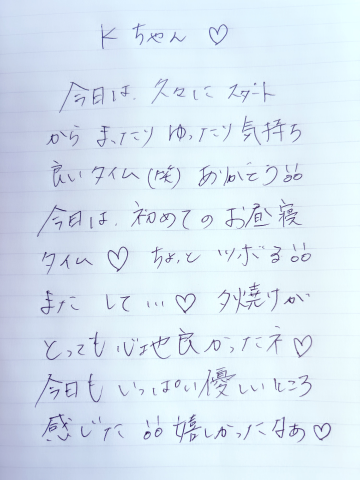 Kちゃん ♡
今日は、久々に スタート
から まったり ゆったり 気持ち
良いタイム(笑) ありがとう!!
今日は、初めての お昼寝
タイム ♡ ちょっと ツボる!!
また して… ♡ 夕焼けが
とっても 心地良かったネ♡
今日も いっぱい 優しいところ
感じた !! 嬉しかったなぁ♡